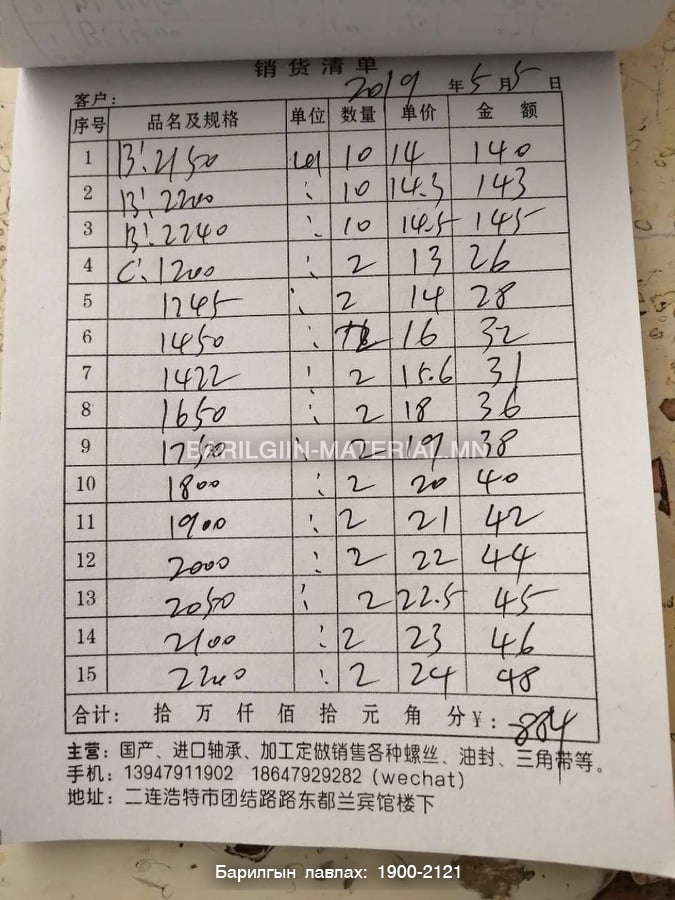 销货清单
客户： 2019 年 5 月 5 日
序号 品名及规格 单位 数量 单价 金额
1 B: 2150 10 14 140
2 B: 2200 : 10 14.3 143
3 B: 2240 : 10 14.5 145
4 C: 1200 : 2 13 26
5 1245 : 2 14 28
6 1450 : 2 16 32
7 1422 : 2 15.6 31
8 1650 : 2 18 36
9 1750 : 2 19 38
BARILGIIN-MATERIAL.MN
10 1800 : 2 20 40
11 1900 : 2 21 42
12 2000 : 2 22 44
13 2050 : 2 22.5 45
14 2100 : 2 23 46
15 2200 : 2 24 48
合计： 拾 万 仟 佰 拾 元 角 分 ¥： 884
主营：国产、进口轴承、加工定做销售各种螺丝、油封、三角带等。
手机：13947911902 18647929282 (wechat)
地址：二连浩特市团结路路东都兰宾馆楼下
Барилгын лавлах: 1900-2121